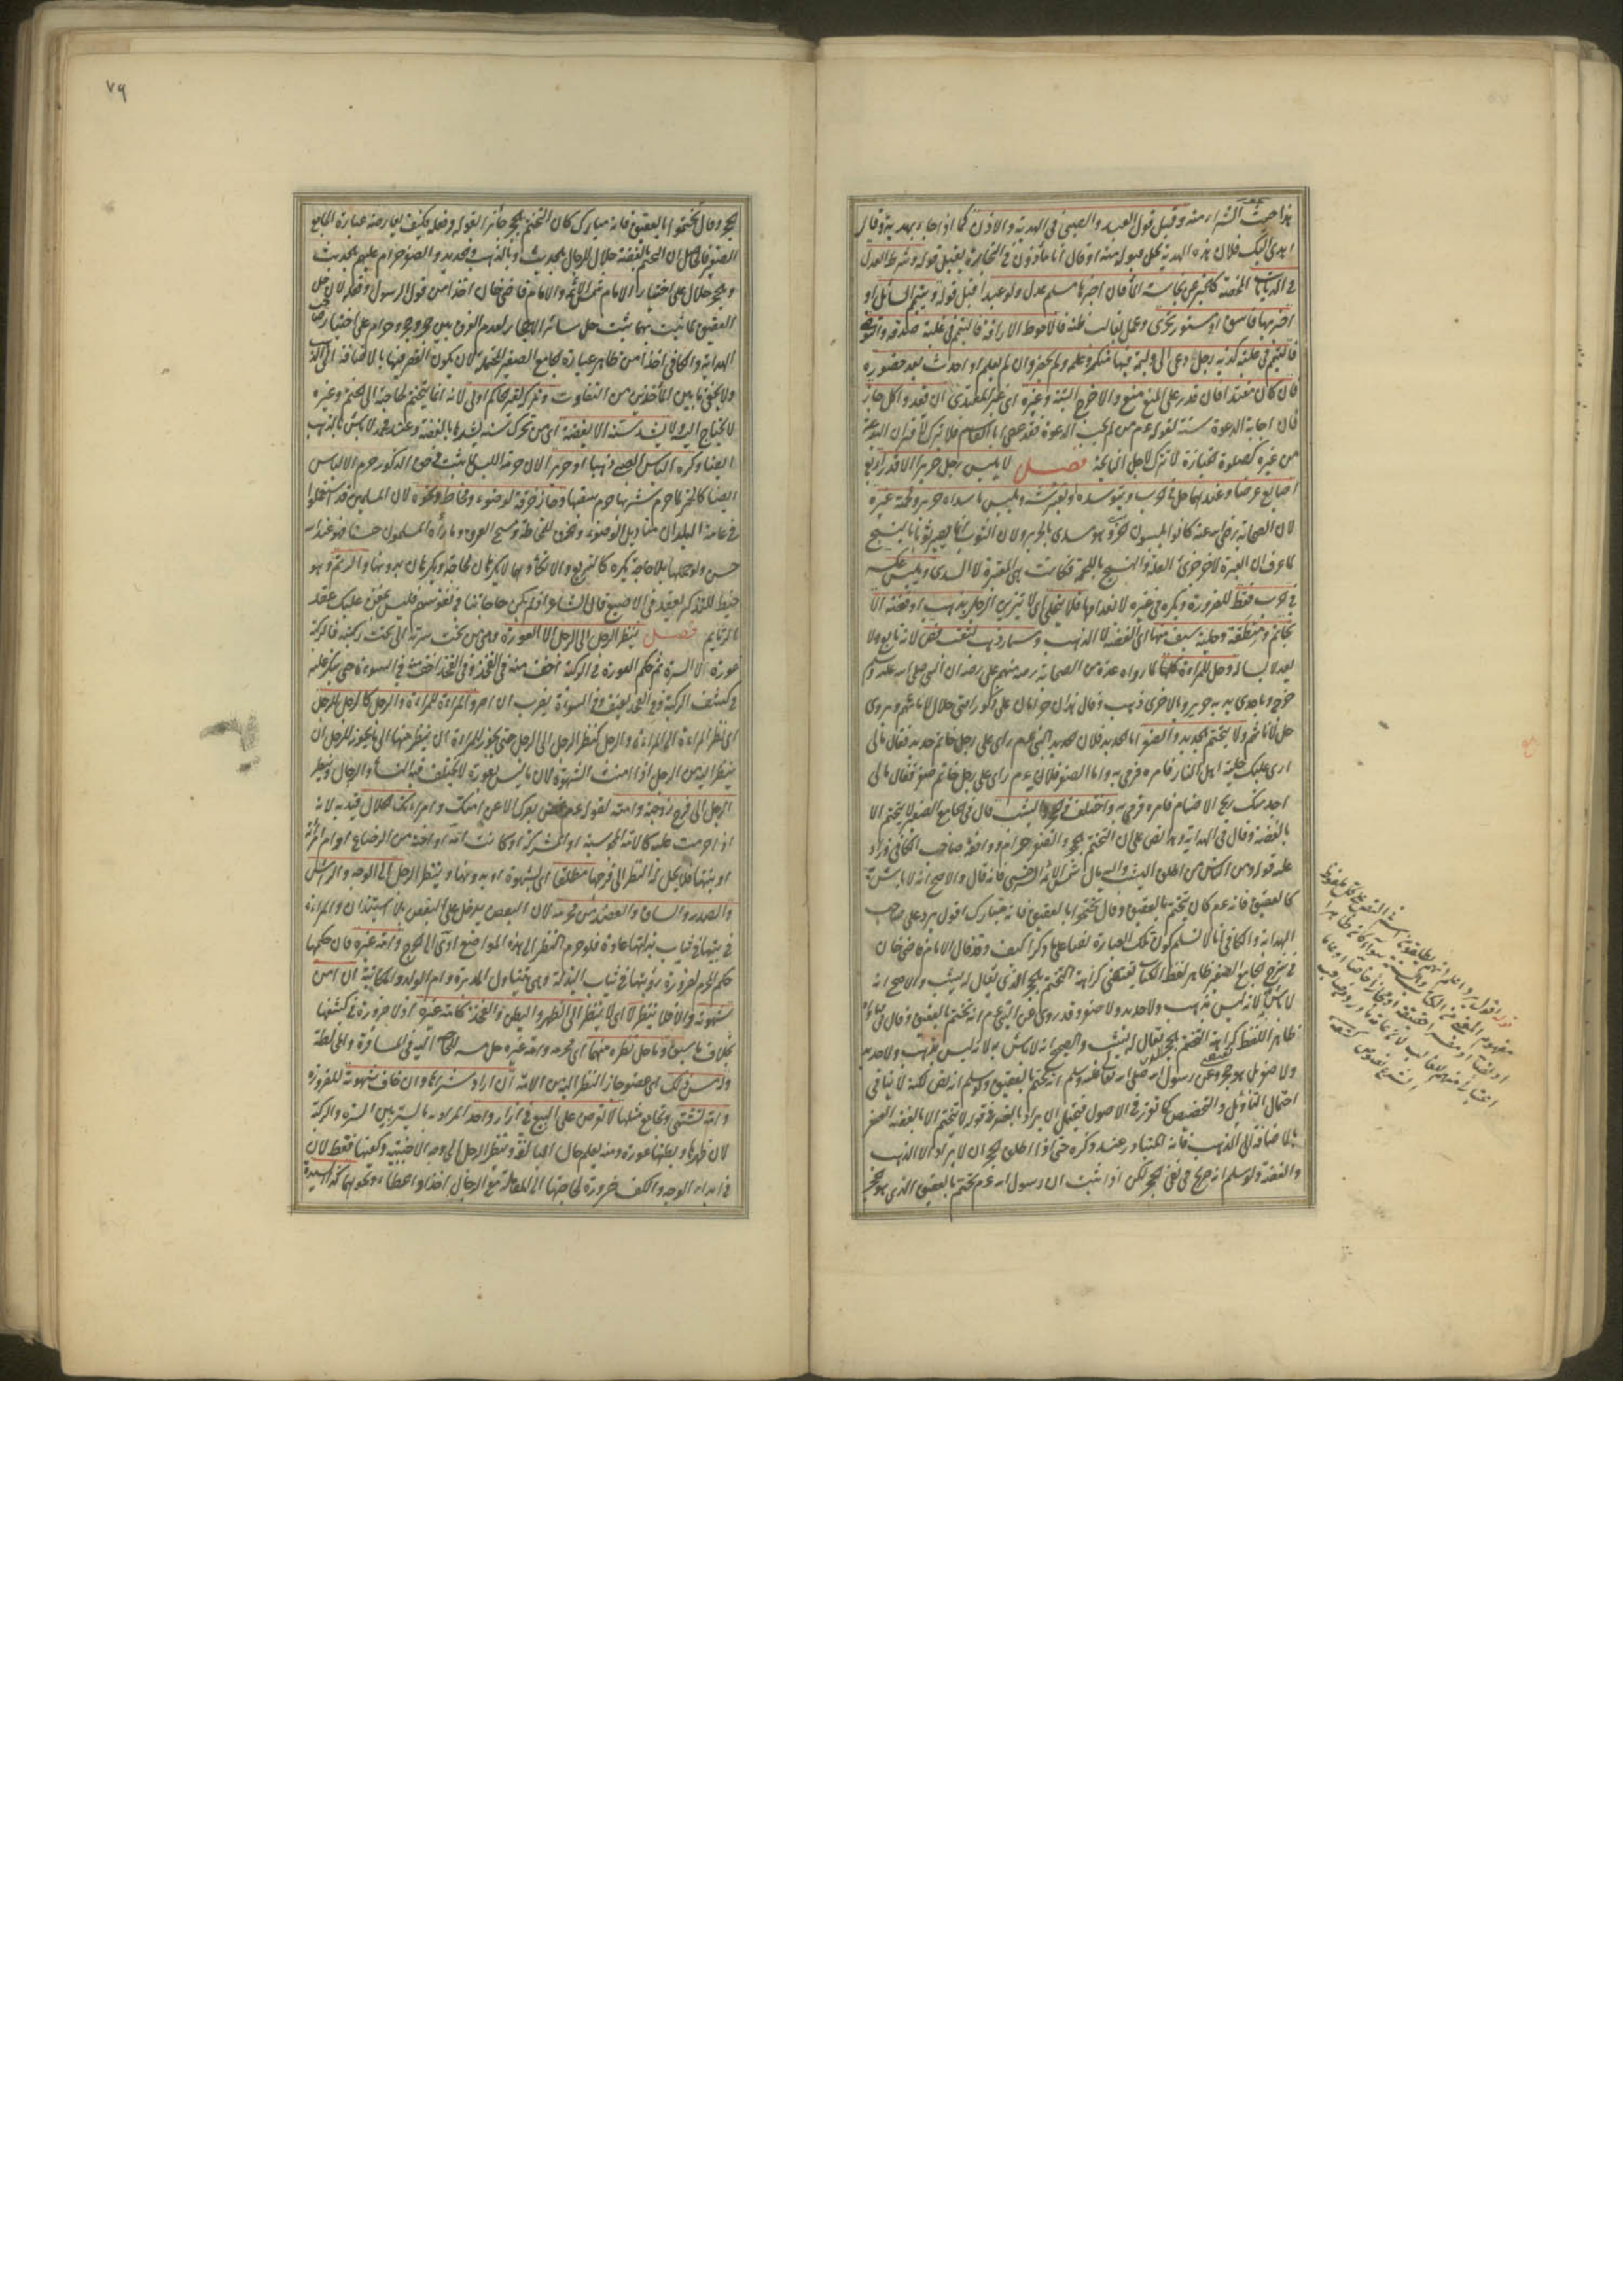 هذا حيث الشراء منه وقبل قول العبد والصبي في الهدية والاذن كما اذا جاء بهدية وقال
اهدى اليك فلان هذه الهدية يحل قبوله منه او قال انا ماذون في التجارة يقبل قوله وشرط العدل
في الديانات المحضة كالخبر عن نجاسة الماء فان اخبر بها مسلم عدل ولو عبدا قبل قوله ويتيمم السائل او
اخبر بها فاسق او مستور تحرى وعمل بغالب ظنه فالاحوط الاراقة فالتيمم في غلبة صدقه والتوضى
فالتيمم في غلبة كذبه رجل دعى الى وليمة فيها منكر وعلمه ولم يحضر وان لم يعلم او احدث بعد حضوره
فان كان مقتدا فان قدر على المنع منع والا خرج البتة وغيره اى غير المقتدى ان قعد واكل جاز
فان اجابة الدعوة سنة لقوله عم من لم يجب الدعوة فقد عصى ابا القاسم فلا تترك لاقتران البدعة
من غيره كصلوة الجنازة لا تترك لاجل النايحة فصل لا يلبس رجل حريرا الا قدر اربع
اصابع عرضا وعندهما حل في حرب ويتوسده ويفترشه ويلبس ما سداه حرير ولحمته غيره
لان الصحابة رضي الله عنه كانوا يلبسون الخز وهو مسدى بالحرير ولان الثوب انما يصير ثوبا بالنسج
كما عرف ان العبرة لآخر جزئ العلة والنسج باللحمة فكانت هي المعتبرة لا السدى ويلبس عكسه
في حرب فقط للضرورة ويكره في غيره لانعدامها فلا يتحلى اى لا يتزين الرجل بذهب او فضة الا
بخاتم ومنطقة وحلية سيف منها اى الفضة لا الذهب ومسمار ذهب لثقب فص لانه تابع ولا
يعد لابسا له وحل للمراة كلها لما رواه عدة من الصحابة رضي الله عنهم على رضه ان النبي صلى الله عليه وسلم
خرج وباحدى يديه حرير وبالاخرى ذهب وقال هذان حرامان على ذكور امتى حلال لاناثهم ويروى
حل لاناثهم ولا يتختم بالحديد والصفر اما الحديد فلان النبي عم راى على رجل خاتم حديد فقال مالى
ارى عليك حلية اهل النار فامره فرمى به واما الصفر فلانه عم راى على رجل خاتم صفر فقال مالى
اجد منك ريح الاصنام فامره فرمى به واختلف في الحجر اليشب قال في الجامع الصغير لا يتختم الا
بالفضة وقال في الهداية وهذا نص على ان التختم بالحجر والصفر حرام ووافقه صاحب الكافي وزاد
عليه قوله ومن الناس من اطلق اليشب واليه مال شمس الائمة السرخسي فانه قال والاصح انه لا باس به
كالعقيق فانه عم كان يتختم بالعقيق وقال تختموا بالعقيق فانه مبارك اقول يرد على صاحب
الهداية والكافي انا لا نسلم كون تلك العبارة نصا على ما ذكرا كيف وقد قال الامام قاضى خان
في شرح الجامع الصغير ظاهر لفظ الكتاب يقتضى كراهة التختم بالحجر الذى يقال له يشب والاصح انه
لا باس لانه ليس بذهب ولا حديد ولا صفر وقد روى عن النبي عم انه تختم بالعقيق وقال في فتاواه
ظاهر اللفظ كراهة التختم بالحجر الذى يقال له يشب والصحيح انه لا باس به لانه ليس بذهب ولا حديد
ولا صفر بل هو حجر وعن رسول الله صلى الله تعالى عليه وسلم انه تختم بالعقيق ولو سلم انه نص لكنه لا ينافي
احتمال التاويل والتخصيص كما تقرر في الاصول فيحتمل ان يراد بالقصر في قوله لا تختم الا بالفضة القصر
بالاضافة الى الذهب فانه المتبادر عند ذكره حتى اذا اطلق الحجر ان لا يراد الا الذهب
والفضة ولو سلم انه صريح في نفى الحجر لكن اذا ثبت ان رسول الله عم تختم بالعقيق الذى هو حجر
قوله اقول يرد
٧٩
حجر وقال تختموا بالعقيق فانه مبارك كان التختم بالحجر جائزا لقوله وفعله فكيف يعارضه عبارة الجامع
الصغير فالحاصل ان التختم بالفضة حلال للرجال بالحديث وبالذهب والحديد والصفر حرام عليهم بالحديث
وبالحجر حلال على اختيار الامام شمس الائمة والامام قاضى خان اخذا من قول الرسول وفعله لان حل
العقيق لما ثبت بهما يثبت حل سائر الاحجار لعدم الفرق بين حجر وحجر وحرام على اختيار صاحب
الهداية والكافي اخذا من ظاهر عبارة الجامع الصغير المحتملة لان يكون القصر فيها بالاضافة الى الذهب
ولا يخفى ما بين الماخذين من التفاوت وتركه لغير حاكم اولى لانه انما يتختم لحاجة الى الختم وغيره
لا يحتاج اليه ولا يشد سنه الا بفضة اى من تحرك سنه يشدها بالفضة وعند محمد لا باس بالذهب
ايضا وكره الباس الصبي ذهبا او حريرا لان حرمة اللبس لما ثبت في حق الذكور حرم الالباس
ايضا كالخمر لما حرم شربها حرم سقيها وجاز خرقة لوضوء ومخاط ونحوه لان المسلمين قد استعملوا
في عامة البلدان مناديل الوضوء والخرق للمخاط ومسح العرق وما رآه المسلمون حسنا فهو عند الله
حسن ولو حملها بلا حاجة يكره كالتربع والاتكاء فانهما لا يكرهان لحاجة ويكرهان بدونها والرتم وهو
خيط للتذكر يعقد في الاصبع قال الشاعر اذا لم تكن حاجاتنا في نفوسكم فليس بمغن عليك عقد
الرتائم فصل ينظر الرجل الى الرجل الا العورة وهى من تحت سرته الى تحت ركبته فالركبة
عورة لا السرة ثم حكم العورة في الركبة اخف منه في الفخذ وفي الفخذ اخف منه في السوءة حتى ينكر عليه
في كشف الركبة برفق وفي الفخذ بعنف وفي السوءة يضرب ان اصر والمراة للمراة والرجل كالرجل للرجل
اى نظر المراة الى المراة والرجل كنظر الرجل الى الرجل حتى يجوز للمراة ان ينظر منها الى ما يجوز للرجل ان
ينظر اليه من الرجل اذا امنت الشهوة لان ما ليس بعورة لا يختلف فيه النساء والرجال وينظر
الرجل الى فرج زوجته وامته لقوله عم غض بصرك الا عن امتك وامراتك الحلال قيد به لانه
اذا حرمت عليه كالامة المجوسية او المشركة او كانت امه او اخته من الرضاع او ام امراته
او بنتها فلا يحل له النظر الى فرجها مطلقا اى بشهوة او بدونها وينظر الرجل الى الوجه والراس
والصدر والساق والعضد من محرمه لان البعض يدخل على البعض بلا استيذان والمراة
في بيتها في ثياب بذلتها عادة فلو حرم النظر الى هذه المواضع ادى الى الحرج وامة غيره فان حكمها
حكم المحرم لضرورة رؤيتها في ثياب البذلة وهى تتناول المدبرة وام الولد والمكاتبة ان امن
شهوته والا فلا ينظر لا اى لا ينظر الى الظهر والبطن والفخذ كامة غيره اذ لا ضرورة في كشفها
بخلاف ما سبق وما حل نظره منهما اى محرمه وامة غيره حل مسه للحاجة اليه في المسافرة والمخالطة
وله مس ذلك اى عضو جاز النظر اليه من الامة ان اراد شراها وان خاف شهوته للضرورة
وامة تشتهى وتجامع مثلها لا تعرض على البيع في ازار واحد المراد به ما يستر بين السرة والركبة
لان ظهرها وبطنها عورة ومنه يعلم حال البالغة وينظر الرجل الى وجه الاجنبية وكفيها فقط لان
في ابداء الوجه والكف ضرورة لحاجتها الى المعاملة مع الرجال اخذا واعطاء ونحوهما كذا السيدة